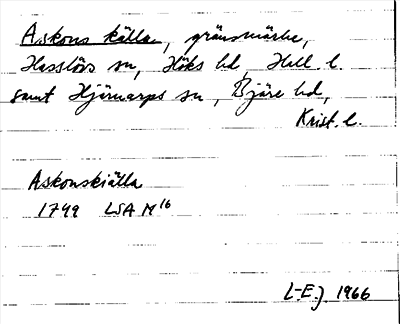 Askons källa, gränsmärke,
Hasslövs sn, Höks hd, Hall. l.
samt Hjärnarps sn, Bjäre hd,
Krist. l.
Askonskiälla
1749 LSA M16
L-E.J. 1966